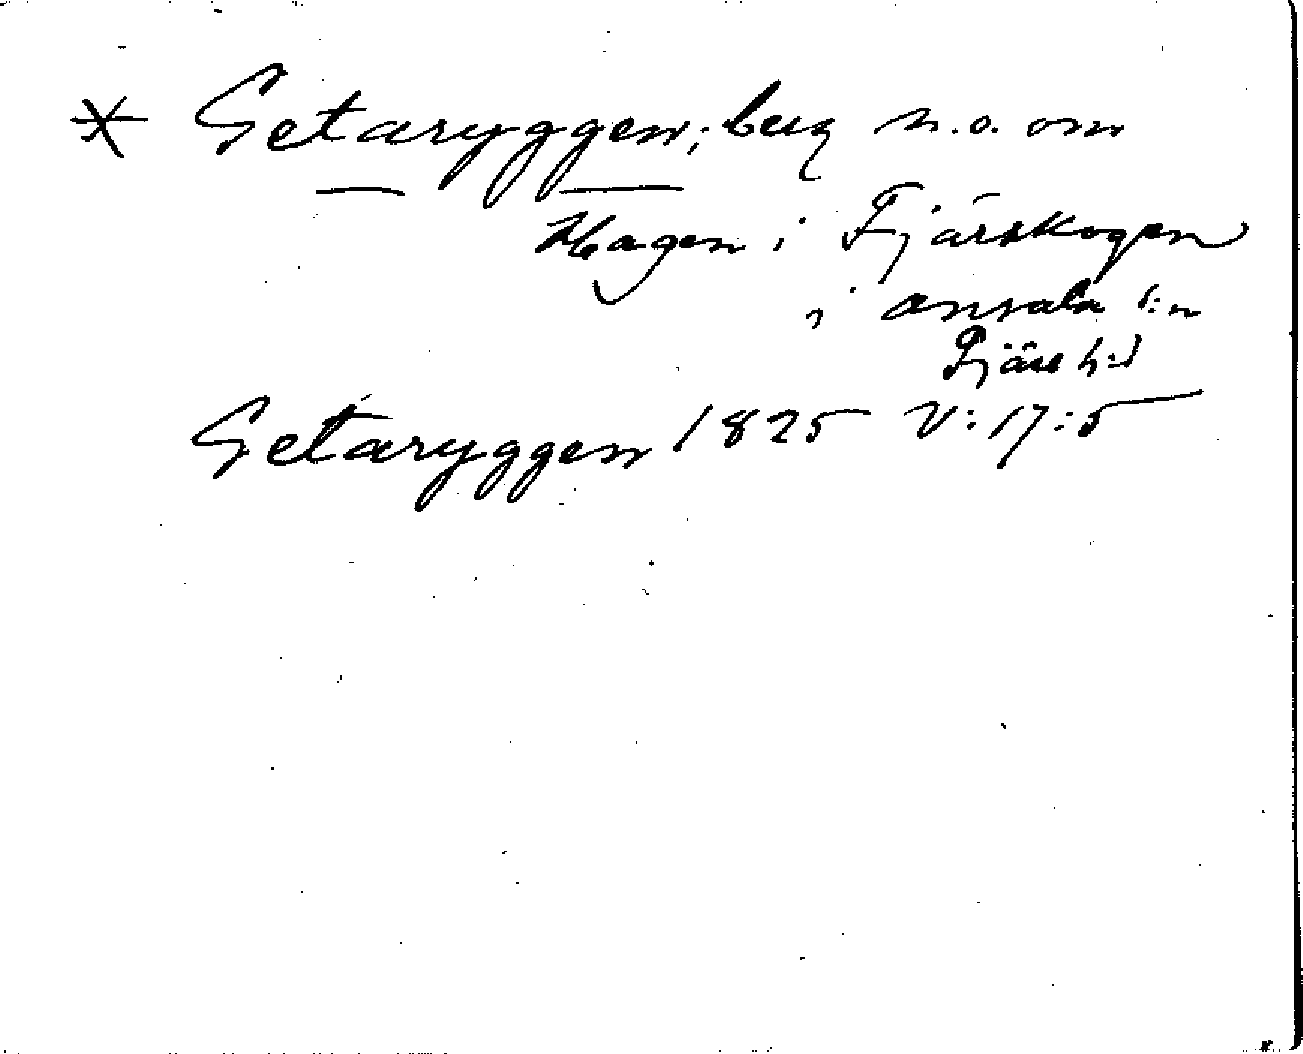 * Getaryggen; berg n.o. om
Hagen i Fjärskogen
i Onsala s:n
Fjäre h:d
Getaryggen 1825 V:17:5